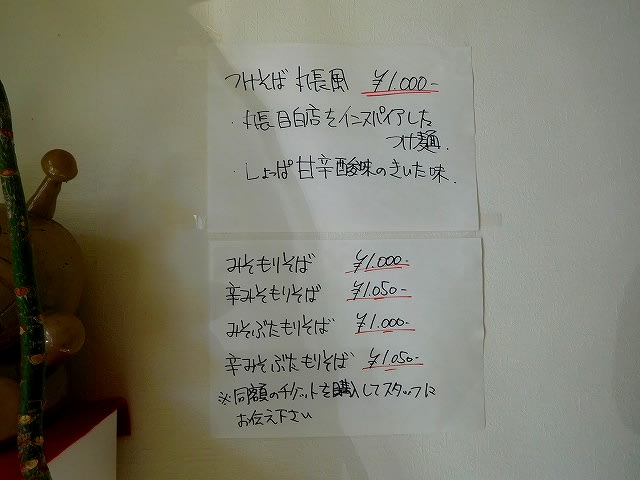 つけそば 丸長風 ¥1.000-
・丸長目白店をインスパイアした
つけ麺.
・しょっぱ甘辛酸味のきいた味.
みそもりそば ¥1.000-
辛みそもりそば ¥1.050-
みそぶたもりそば ¥1.000-
辛みそぶたもりそば ¥1.050-
※同額のチケットを購入してスタッフに
お伝え下さい